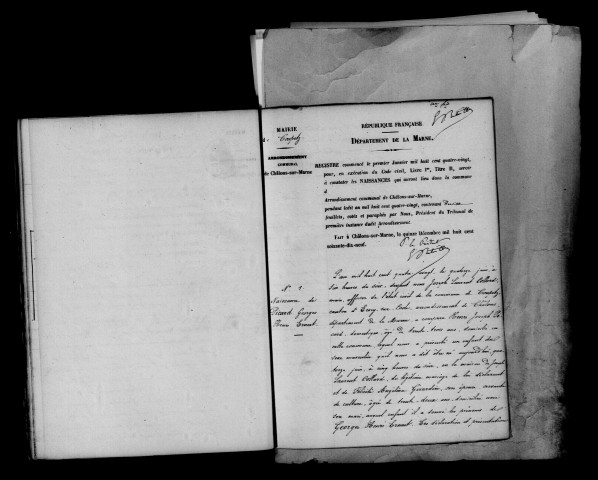 MAIRIE
d. Coupetz
ARRONDISSEMENT
COMMUNAL
de Châlons-sur-Marne
RÉPUBLIQUE FRANÇAISE
DÉPARTEMENT DE LA MARNE.
REGISTRE commencé le premier Janvier mil huit cent quatre-vingt,
pour, en exécution du Code civil, Livre Ier, Titre II, servir
à constater les NAISSANCES qui auront lieu dans la commune
d
Arrondissement communal de Châlons-sur-Marne,
pendant ledit an mil huit cent quatre-vingt, contenant
feuillets, cotés et paraphés par Nous, Président du Tribunal de
première instance dudit arrondissement.
FAIT à Châlons-sur-Marne, le quinze Décembre mil huit cent
soixante-dix-neuf.
N° 1.
Naissance de
Picard Georges
Henri Ernest
L'an mil huit cent quatre vingt, le quatorze juin à
six heures du soir, devant nous Joseph Laurent Collard
maire, officier de l'état civil de la commune de Coupetz
canton d'Ecury sur Coole, arrondissement de Châlons
département de la Marne a comparu Henri Joseph Pi
card, domestique âgé de trente trois ans, domicilié en
cette commune, lequel nous a présenté un enfant du
sexe masculin qu'il nous a dit être né aujourd'hui qua
torze juin, à cinq heures du soir, en la maison de Joseph
Laurent Collard, du légitime mariage de lui déclarant
et de
de culture, âgée de trente deux ans, domiciliée avec
son mari, auquel enfant il a donné les prénoms de
Georges Henri Ernest. Ces déclaration et présentation